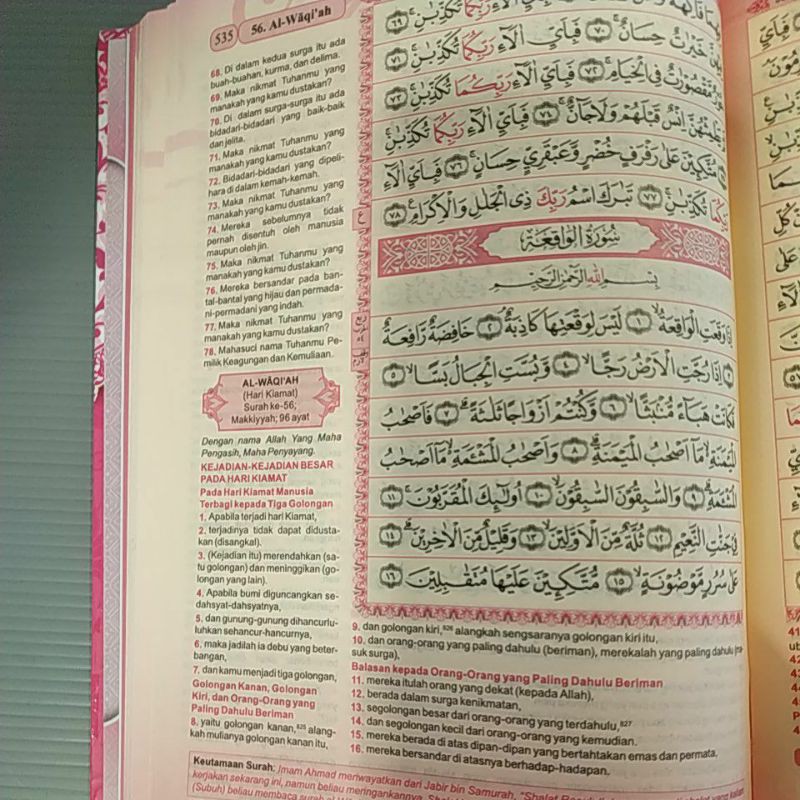 535 56. Al-Wāqi'ah
68. Di dalam kedua surga itu ada
buah-buahan, kurma, dan delima.
69. Maka nikmat Tuhanmu yang
manakah yang kamu dustakan?
70. Di dalam surga-surga itu ada
bidadari-bidadari yang baik-baik
dan jelita.
71. Maka nikmat Tuhanmu yang
manakah yang kamu dustakan?
72. Bidadari-bidadari yang dipeli-
hara di dalam kemah-kemah.
73. Maka nikmat Tuhanmu yang
manakah yang kamu dustakan?
74. Mereka sebelumnya tidak
pernah disentuh oleh manusia
maupun oleh jin.
75. Maka nikmat Tuhanmu yang
manakah yang kamu dustakan?
76. Mereka bersandar pada ban-
tal-bantal yang hijau dan permada-
ni-permadani yang indah.
77. Maka nikmat Tuhanmu yang
manakah yang kamu dustakan?
78. Mahasuci nama Tuhanmu Pe-
milik Keagungan dan Kemuliaan.
AL-WĀQI'AH
(Hari Kiamat)
Surah ke-56;
Makkiyyah; 96 ayat
Dengan nama Allah Yang Maha
Pengasih, Maha Penyayang.
KEJADIAN-KEJADIAN BESAR
PADA HARI KIAMAT
Pada Hari Kiamat Manusia
Terbagi kepada Tiga Golongan
1. Apabila terjadi hari Kiamat,
2. terjadinya tidak dapat didusta-
kan (disangkal).
3. (Kejadian itu) merendahkan (sa-
tu golongan) dan meninggikan (go-
longan yang lain).
4. Apabila bumi diguncangkan se-
dahsyat-dahsyatnya,
5. dan gunung-gunung dihancurlu-
luhkan sehancur-hancurnya,
6. maka jadilah ia debu yang beter-
bangan,
7. dan kamu menjadi tiga golongan,
Golongan Kanan, Golongan
Kiri, dan Orang-Orang yang
Paling Dahulu Beriman
8. yaitu golongan kanan,⁸²⁵ alang-
kah mulianya golongan kanan itu,
خَيْرٰتٌ حِسَانٌ ۚ ٧٠ فَبِاَيِّ اٰلَاۤءِ رَبِّكُمَا تُكَذِّبٰنِۚ ٧١
مَّقْصُوْرٰتٌ فِى الْخِيَامِۚ ٧٢ فَبِاَيِّ اٰلَاۤءِ رَبِّكُمَا تُكَذِّبٰنِۚ ٧٣
يَطْمِثْهُنَّ اِنْسٌ قَبْلَهُمْ وَلَا جَاۤنٌّۚ ٧٤ فَبِاَيِّ اٰلَاۤءِ رَبِّكُمَا تُكَذِّبٰنِۚ
مُتَّكِـِٕيْنَ عَلٰى رَفْرَفٍ خُضْرٍ وَّعَبْقَرِيٍّ حِسَانٍۚ ٧٦ فَبِاَيِّ اٰلَاۤءِ
رَبِّكُمَا تُكَذِّبٰنِۚ ٧٧ تَبٰرَكَ اسْمُ رَبِّكَ ذِى الْجَلٰلِ وَالْاِكْرَامِ ٧٨
سُوْرَةُ الْوَاقِعَةِ
بِسْمِ اللّٰهِ الرَّحْمٰنِ الرَّحِيْمِ
اِذَا وَقَعَتِ الْوَاقِعَةُۙ ١ لَيْسَ لِوَقْعَتِهَا كَاذِبَةٌۘ ٢ خَافِضَةٌ رَّافِعَةٌ
٣ اِذَا رُجَّتِ الْاَرْضُ رَجًّاۙ ٤ وَّبُسَّتِ الْجِبَالُ بَسًّاۙ ٥
فَكَانَتْ هَبَاۤءً مُّنْۢبَثًّاۙ ٦ وَّكُنْتُمْ اَزْوَاجًا ثَلٰثَةًۗ ٧ فَاَصْحٰبُ
الْمَيْمَنَةِ ەۙ مَآ اَصْحٰبُ الْمَيْمَنَةِۗ ٨ وَاَصْحٰبُ الْمَشْـَٔمَةِ ەۙ مَآ اَصْحٰبُ
الْمَشْـَٔمَةِۗ ٩ وَالسّٰبِقُوْنَ السّٰبِقُوْنَۙ ١٠ اُولٰۤىِٕكَ الْمُقَرَّبُوْنَۚ ١١
فِيْ جَنّٰتِ النَّعِيْمِ ١٢ ثُلَّةٌ مِّنَ الْاَوَّلِيْنَۙ ١٣ وَقَلِيْلٌ مِّنَ الْاٰخِرِيْنَۗ
عَلٰى سُرُرٍ مَّوْضُوْنَةٍۙ ١٥ مُّتَّكِـِٕيْنَ عَلَيْهَا مُتَقٰبِلِيْنَ ١٦
9. dan golongan kiri,⁸²⁶ alangkah sengsaranya golongan kiri itu,
10. dan orang-orang yang paling dahulu (beriman), merekalah yang paling dahulu (ma-
suk surga),
Balasan kepada Orang-Orang yang Paling Dahulu Beriman
11. mereka itulah orang yang dekat (kepada Allah),
12. berada dalam surga kenikmatan,
13. segolongan besar dari orang-orang yang terdahulu,⁸²⁷
14. dan segolongan kecil dari orang-orang yang kemudian.
15. mereka berada di atas dipan-dipan yang bertahtakan emas dan permata,
16. mereka bersandar di atasnya berhadap-hadapan.
Keutamaan Surah: Imam Ahmad meriwayatkan dari Jabir bin Samurah, "Shalat
kerjakan sekarang ini, namun beliau meringankannya.
(Subuh) beliau membaca